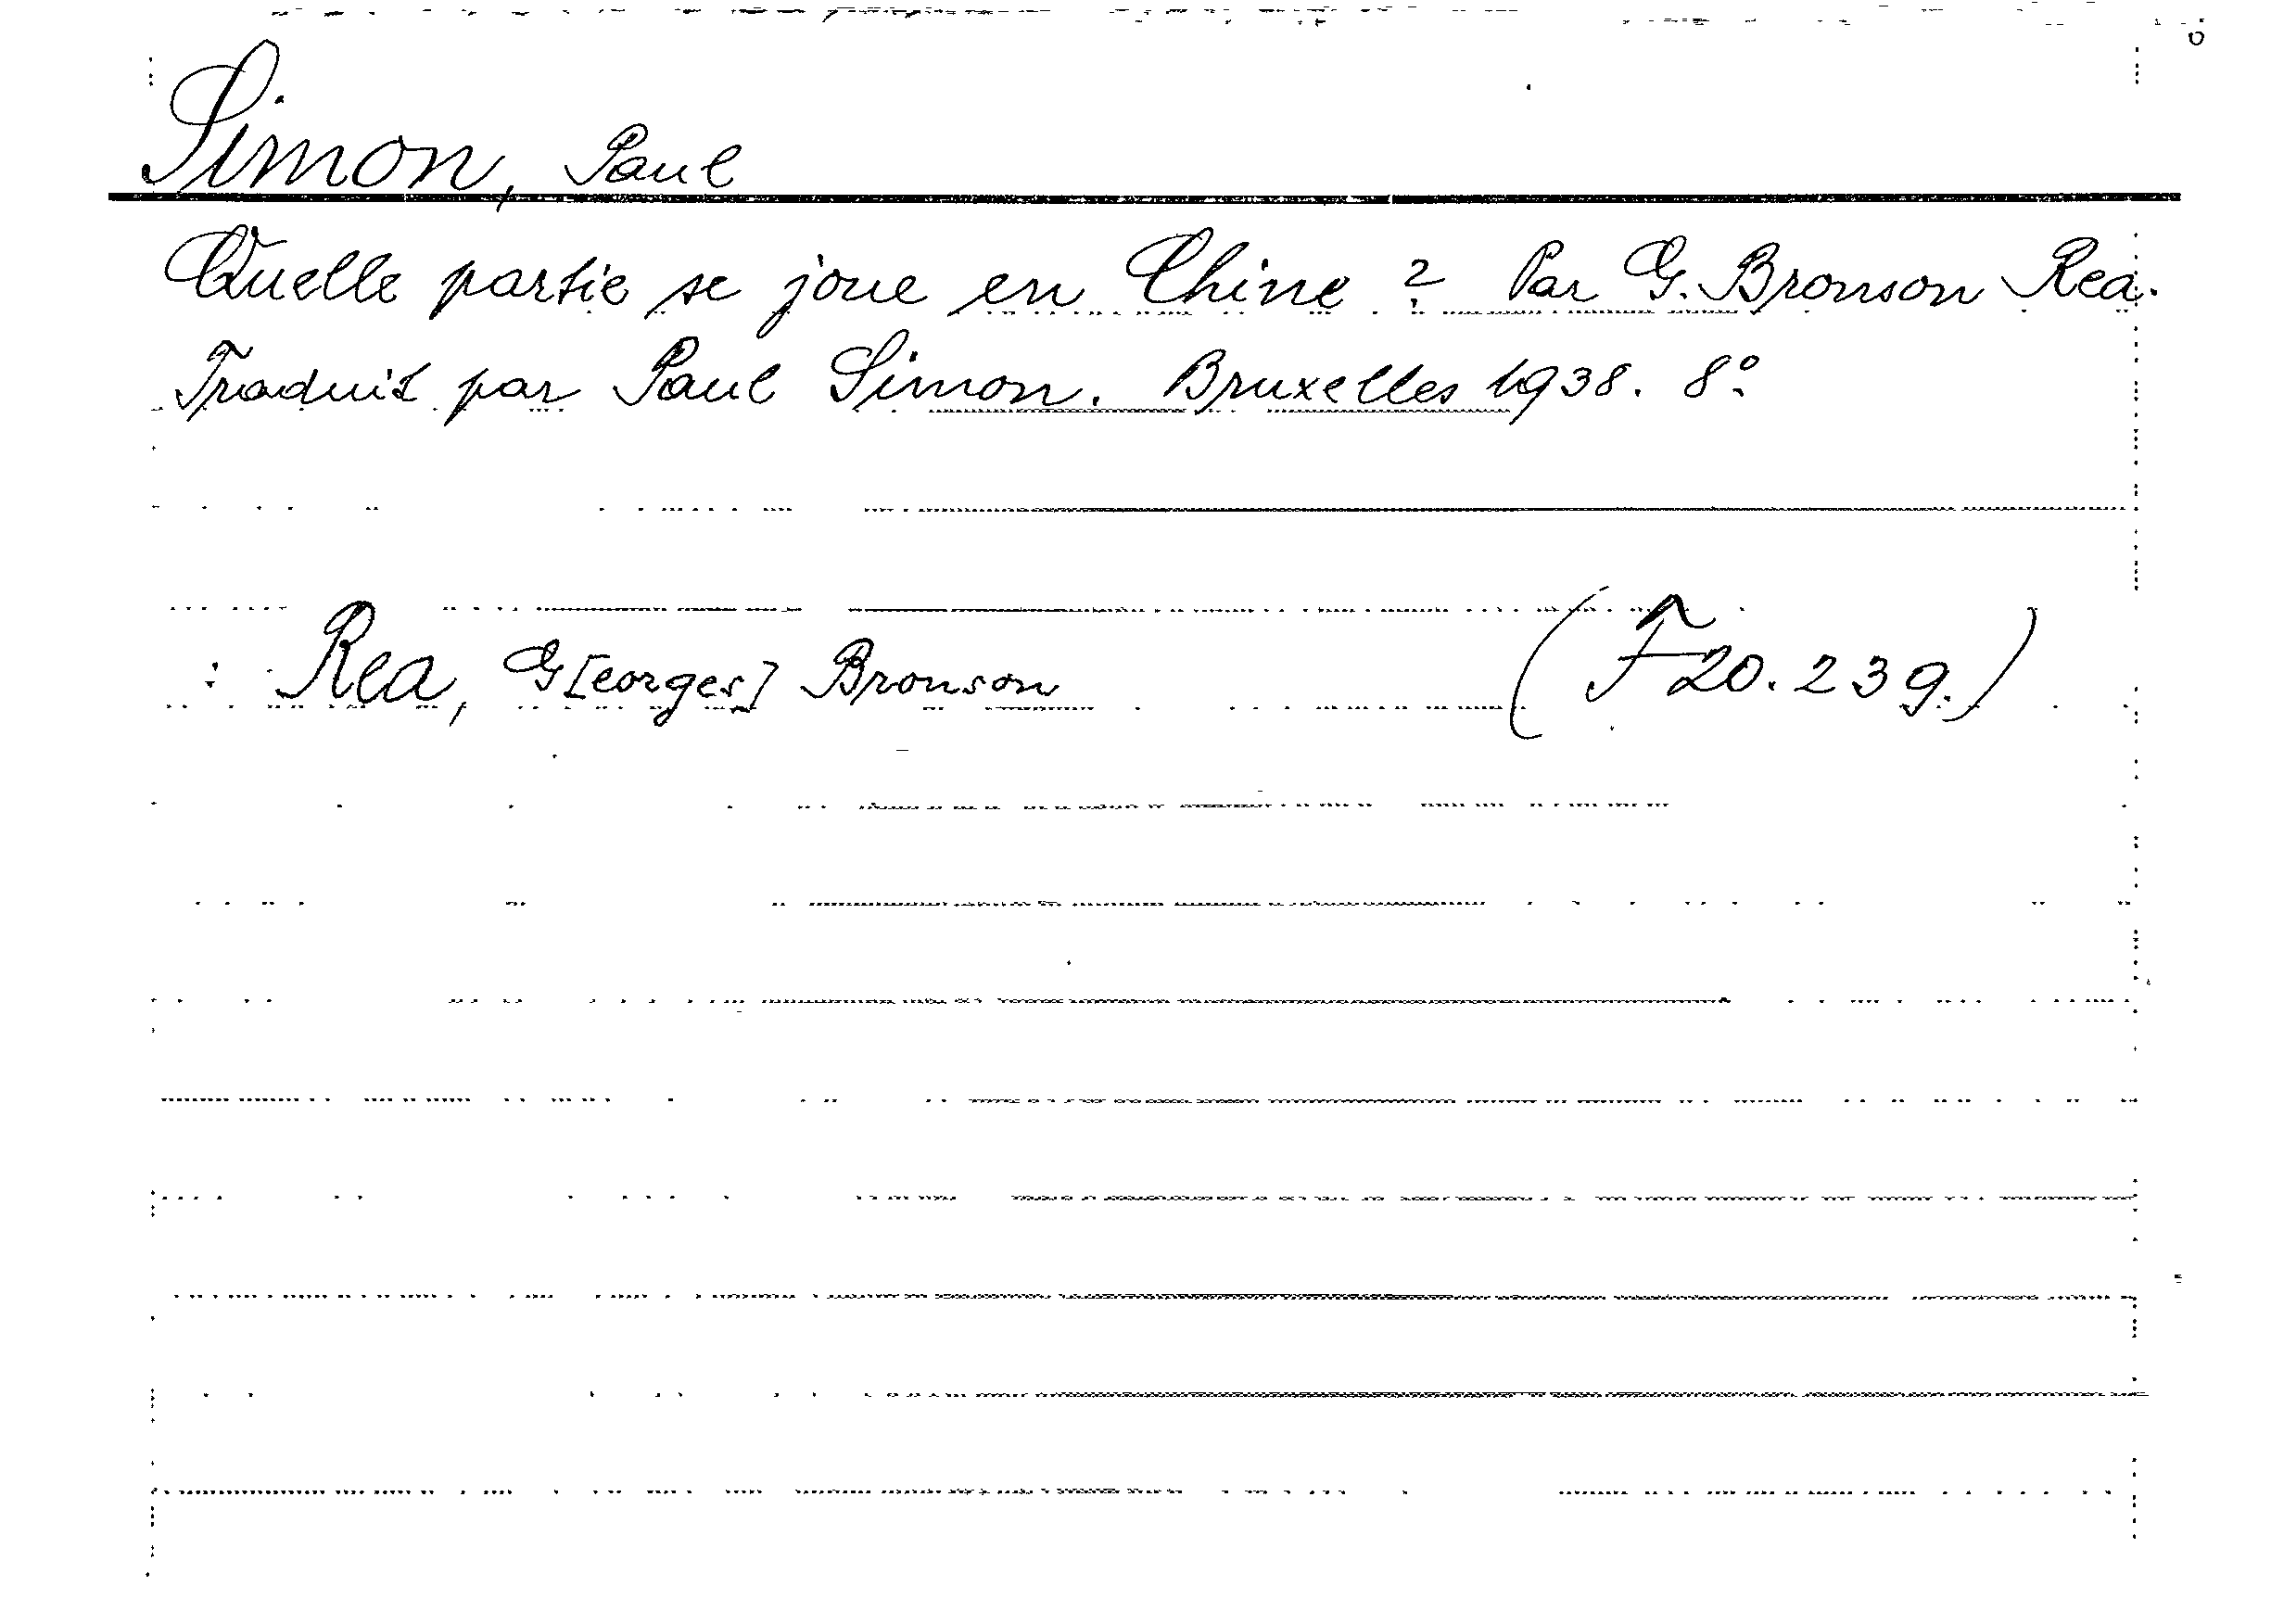 Simon, Paul
Quelle partie se joue en Chine ? Par G. Bronson Rea.
Traduit par Paul Simon. Bruxelles 1938. 8°.
: Rea, G[eorges] Bronson (F 20.239.)